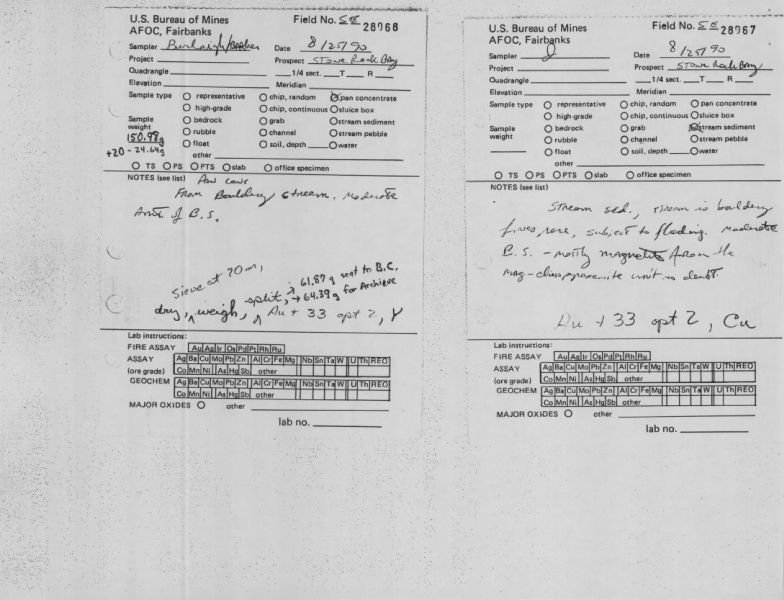 U.S. Bureau of Mines Field No. SE 28968
AFOC, Fairbanks
Sampler Burleigh/Barker Date 8/25/90
Project Prospect Stone Rock Bay
Quadrangle 1/4 sect. T R
Elevation Meridian
Sample type representative chip, random pan concentrate
high-grade chip, continuous sluice box
Sample weight bedrock grab stream sediment
150.98g rubble channel stream pebble
+20 - 24.64g float soil, depth water
other
TS PS PTS slab office specimen
NOTES (see list) Pan conc
From Bouldery stream, moderate
Amt. of B.S.
Sieve at 20 m,
dry, weigh, split, → 61.87 g sent to B.C.
→ 64.39 g for Archive
Au + 33 opt 2, Y
Lab instructions:
FIRE ASSAY Au Ag Ir Os Pd Pt Rh Ru
ASSAY Ag Ba Cu Mo Pb Zn Al Cr Fe Mg Nb Sn Ta W U Th REO
(ore grade) Co Mn Ni As Hg Sb other
GEOCHEM Ag Ba Cu Mo Pb Zn Al Cr Fe Mg Nb Sn Ta W U Th REO
Co Mn Ni As Hg Sb other
MAJOR OXIDES other
lab no.
U.S. Bureau of Mines Field No. SE 28967
AFOC, Fairbanks
Sampler Date 8/25/90
Project Prospect Stone Rock Bay
Quadrangle 1/4 sect. T R
Elevation Meridian
Sample type representative chip, random pan concentrate
high-grade chip, continuous sluice box
Sample weight bedrock grab stream sediment
rubble channel stream pebble
float soil, depth water
other
TS PS PTS slab office specimen
NOTES (see list)
Stream sed., stream is bouldery
fines rare, subject to flooding. moderate
B.S. - mostly magnetite from the
mag-clinopyroxenite unit no doubt.
Au + 33 opt 2, Cu
Lab instructions:
FIRE ASSAY Au Ag Ir Os Pd Pt Rh Ru
ASSAY Ag Ba Cu Mo Pb Zn Al Cr Fe Mg Nb Sn Ta W U Th REO
(ore grade) Co Mn Ni As Hg Sb other
GEOCHEM Ag Ba Cu Mo Pb Zn Al Cr Fe Mg Nb Sn Ta W U Th REO
Co Mn Ni As Hg Sb other
MAJOR OXIDES other
lab no.